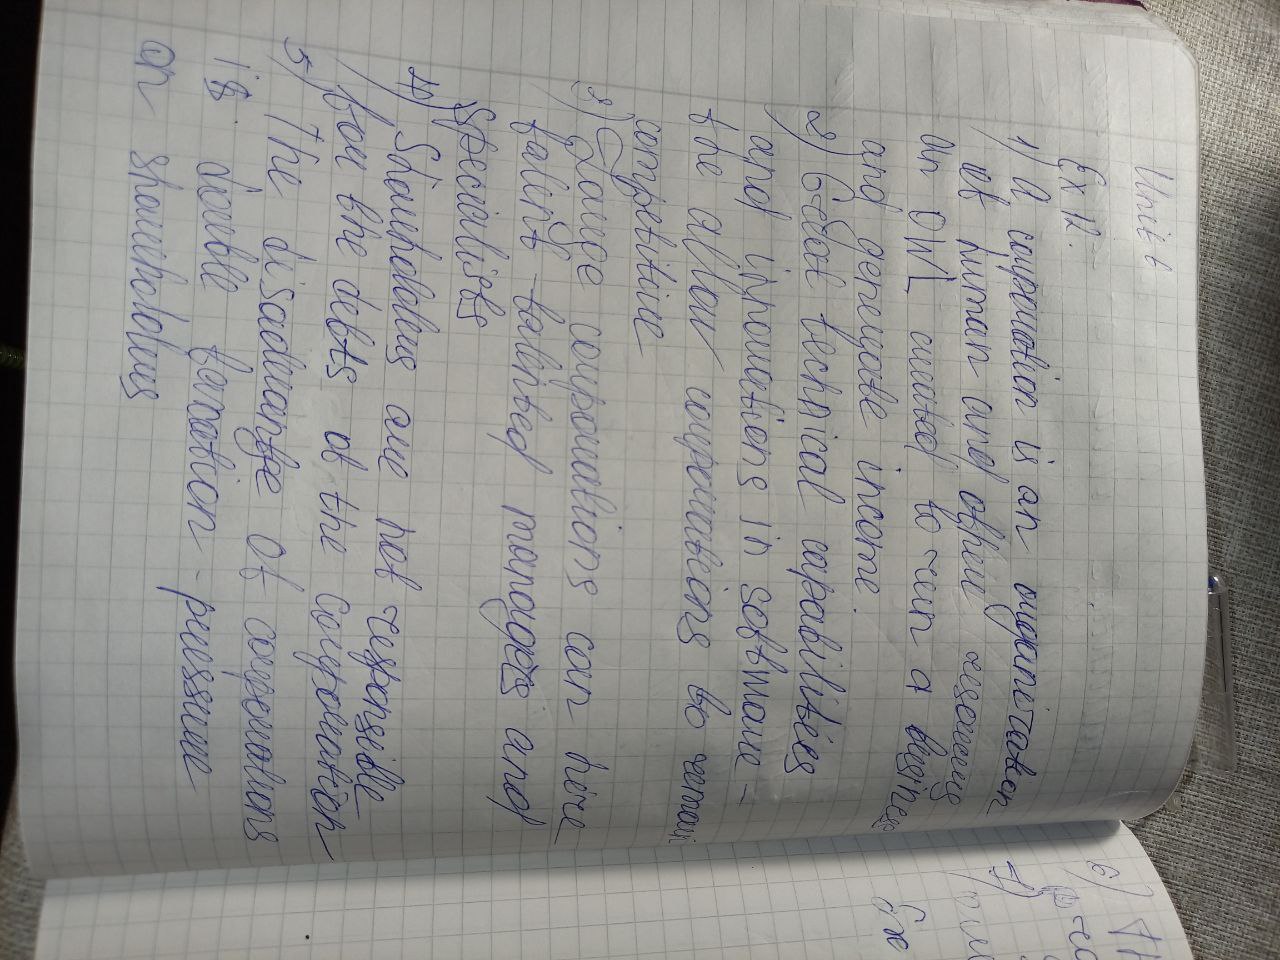 Unit 6
Ex 12.
1) A corporation is an organization
of human and other resources
an OWL created to run a business
and generate income.
2) Great technical capabilities
and innovations in software -
the allow corporations to remain
competitive
3) Large corporations can hire
talint talinted managers and
specialists
4) Shareholders are not responsible
for the debts of the corporation
5) The disadvantge of corporations
is double taxation - pressure
on shareholders
6)
7)